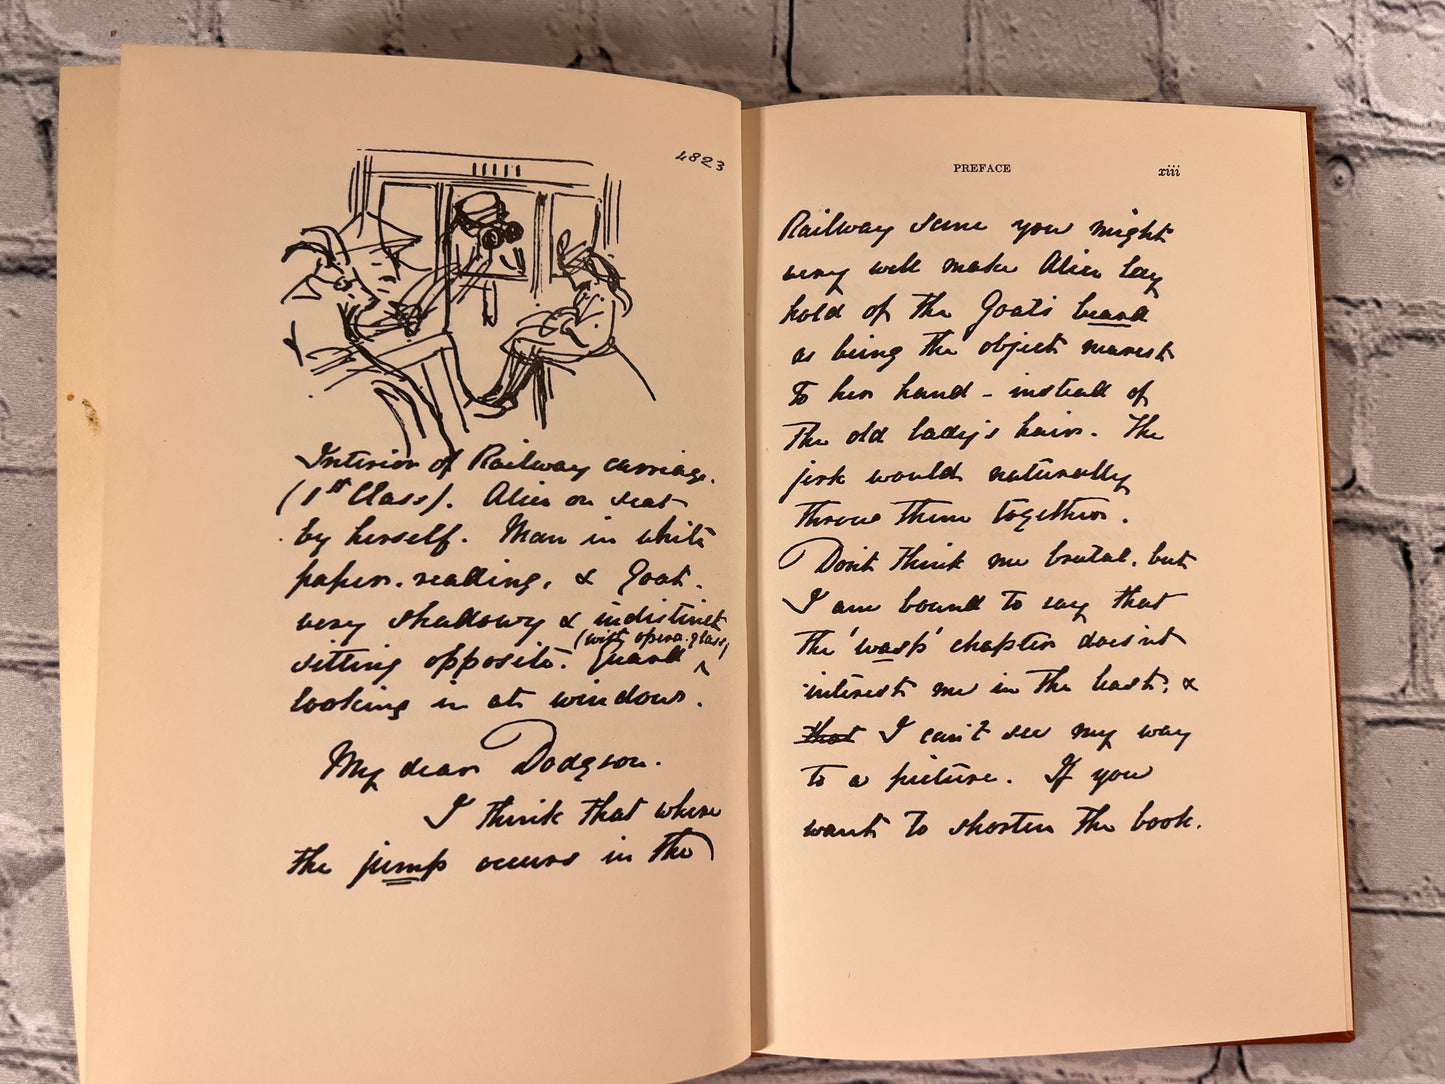 4823
Interior of Railway carriage.
(1st Class). Alice on seat
by herself. Man in white
paper. reading, & Goat.
very shadowy & indistinct
sitting opposite. Guard (with opera glass)
looking in at window.
My dear Dodgson.
I think that when
the jump occurs in the
PREFACE xiii
Railway scene you might
very well make Alice lay
hold of the Goat's beard
as being the object nearest
to her hand - instead of
the old lady's hair. The
jerk would naturally
throw them together.
Don't think me brutal, but
I am bound to say that
the 'wasp' chapter doesn't
interest me in the least, &
that I can't see my way
to a picture. If you
want to shorten the book.